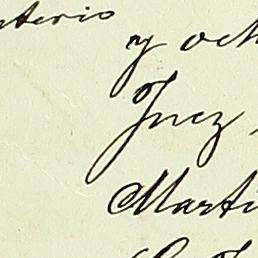 nterio
y och
Juez
Marti